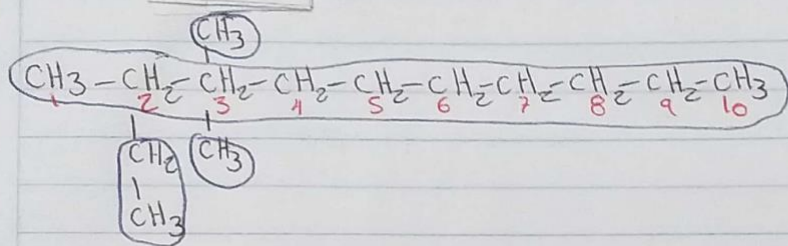 CH3
CH3-CH2-CH2-CH2-CH2-CH2-CH2-CH2-CH2-CH3
1 2 3 4 5 6 7 8 9 10
CH2 CH3
CH3